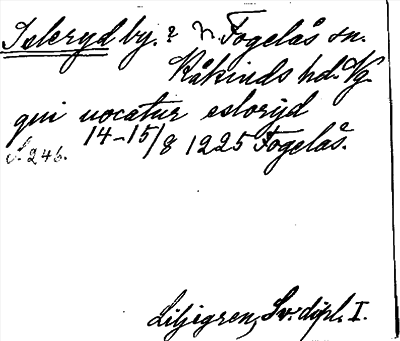 Isleryd by. ? n. Fogelås sn.
Kåkinds hd. Vg.
qui uocatur esloryd
S. 246. 14-15/8 1225 Fogelås.
Liljegren, Sv. dipl. I.